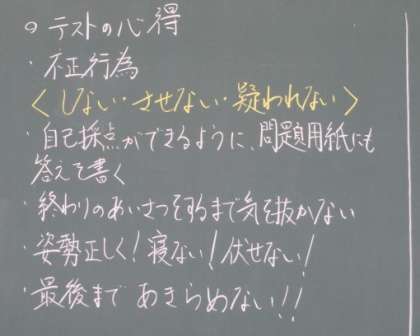 ○ テストの心得
・不正行為
〈しない・させない・疑われない〉
・自己採点ができるように、問題用紙にも
答えを書く
・終わりのあいさつをするまで気を抜かない
・姿勢正しく!寝ない!伏せない!
・最後まで あきらめない!!